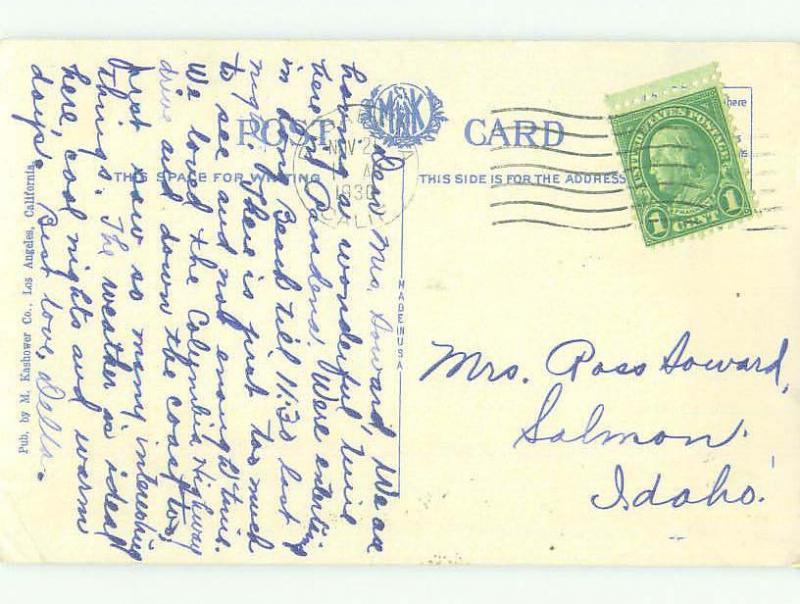 POST CARD
MWK
THIS SPACE FOR WRITING
THIS SIDE IS FOR THE ADDRESS
NOV 2
A
1930
CAL
UNITED STATES POSTAGE
FRANKLIN
1 CENT 1
here
MADE IN USA
Pub. by M. Kashower Co., Los Angeles, California.
Dear Mrs. Soward, We are
having a wonderful time
here at Ramdens. Were
in Long Beach till 11:30 last
night. There is just too much
to see and not enough time.
We loved the Columbia Highway
drive and down the coast too,
just saw so many interesting
things. The weather is ideal
here, cool nights and warm
days. Best love, Della.
Mrs. Ross Soward,
Salmon.
Idaho.